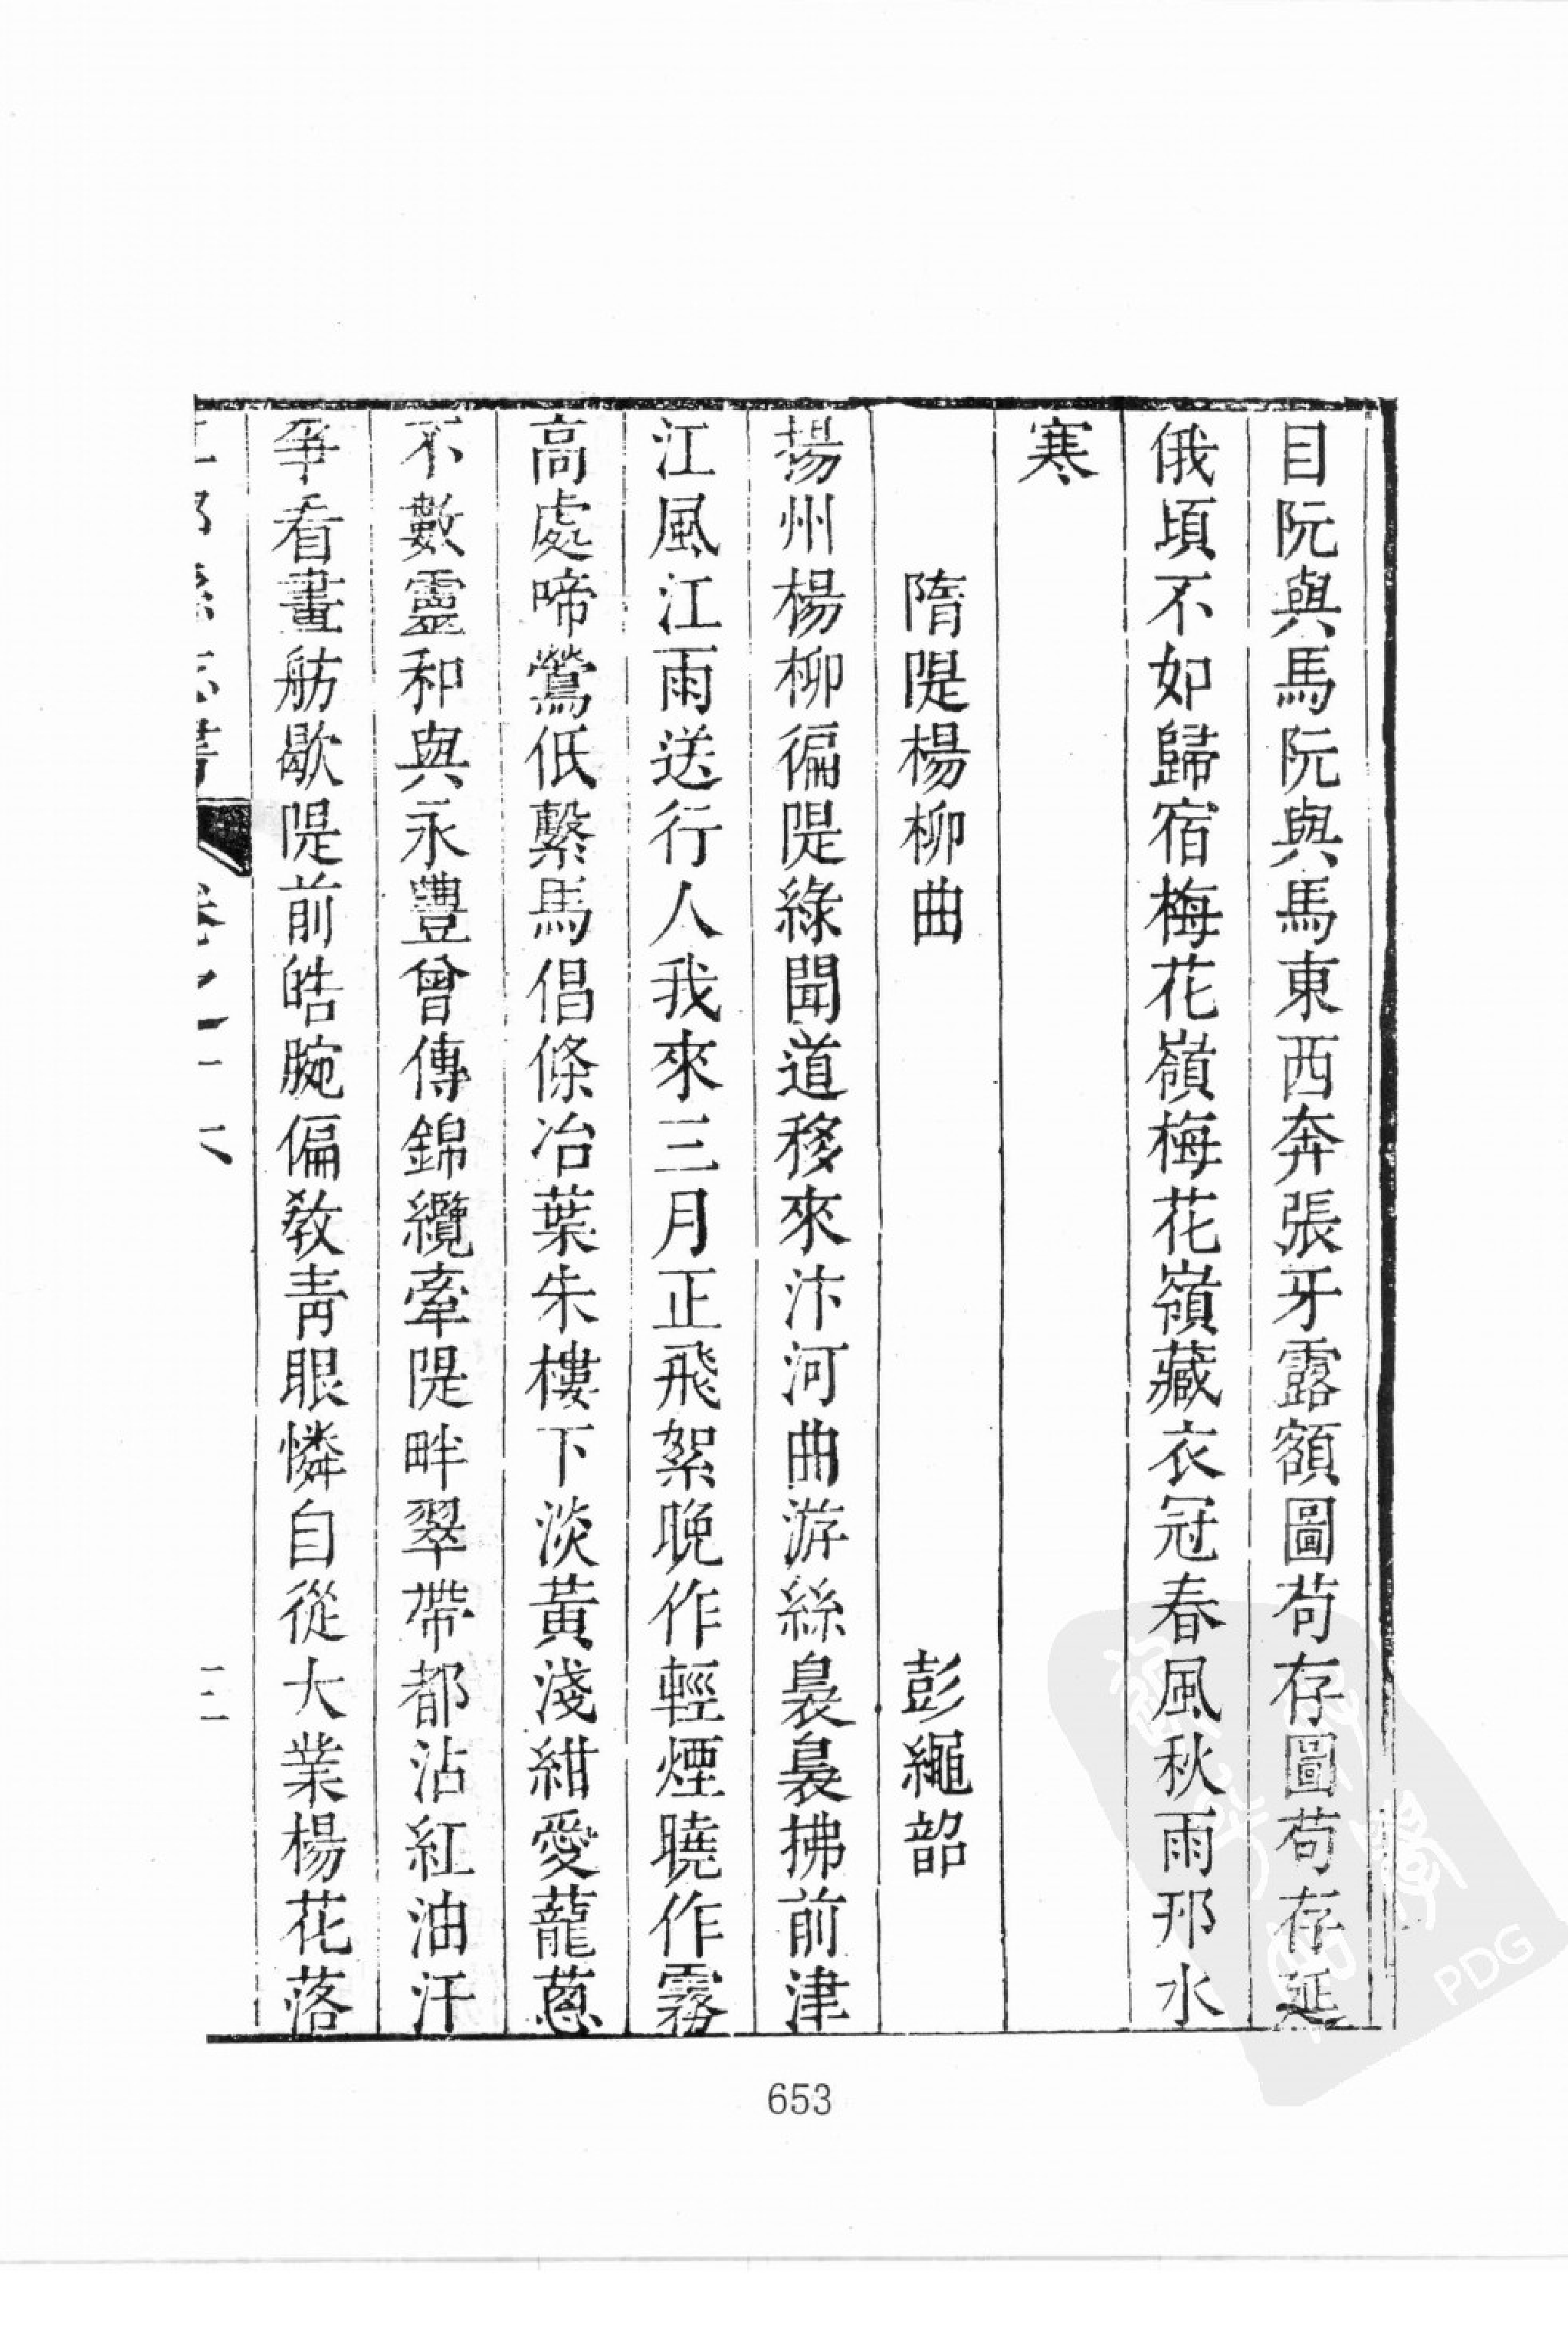 目阮與馬阮與馬東西奔張牙露額圖苟存圖苟存延
俄頃不如歸宿梅花嶺梅花嶺藏衣冠春風秋雨邗水
寒
隋隄楊柳曲 彭繩韶
揚州楊柳徧隄綠聞道移來汴河曲游絲裊裊拂前津
江風江雨送行人我來三月正飛絮晚作輕煙曉作霧
高處啼鶯低繫馬倡條冶葉朱樓下淡黃淺紺愛蘢蔥
不數靈和與永豐曾傳錦纜牽隄畔翠帶都沾紅油汗
爭看畫舫歇隄前皓腕偏教青眼憐自從大業楊花落
653
PDG